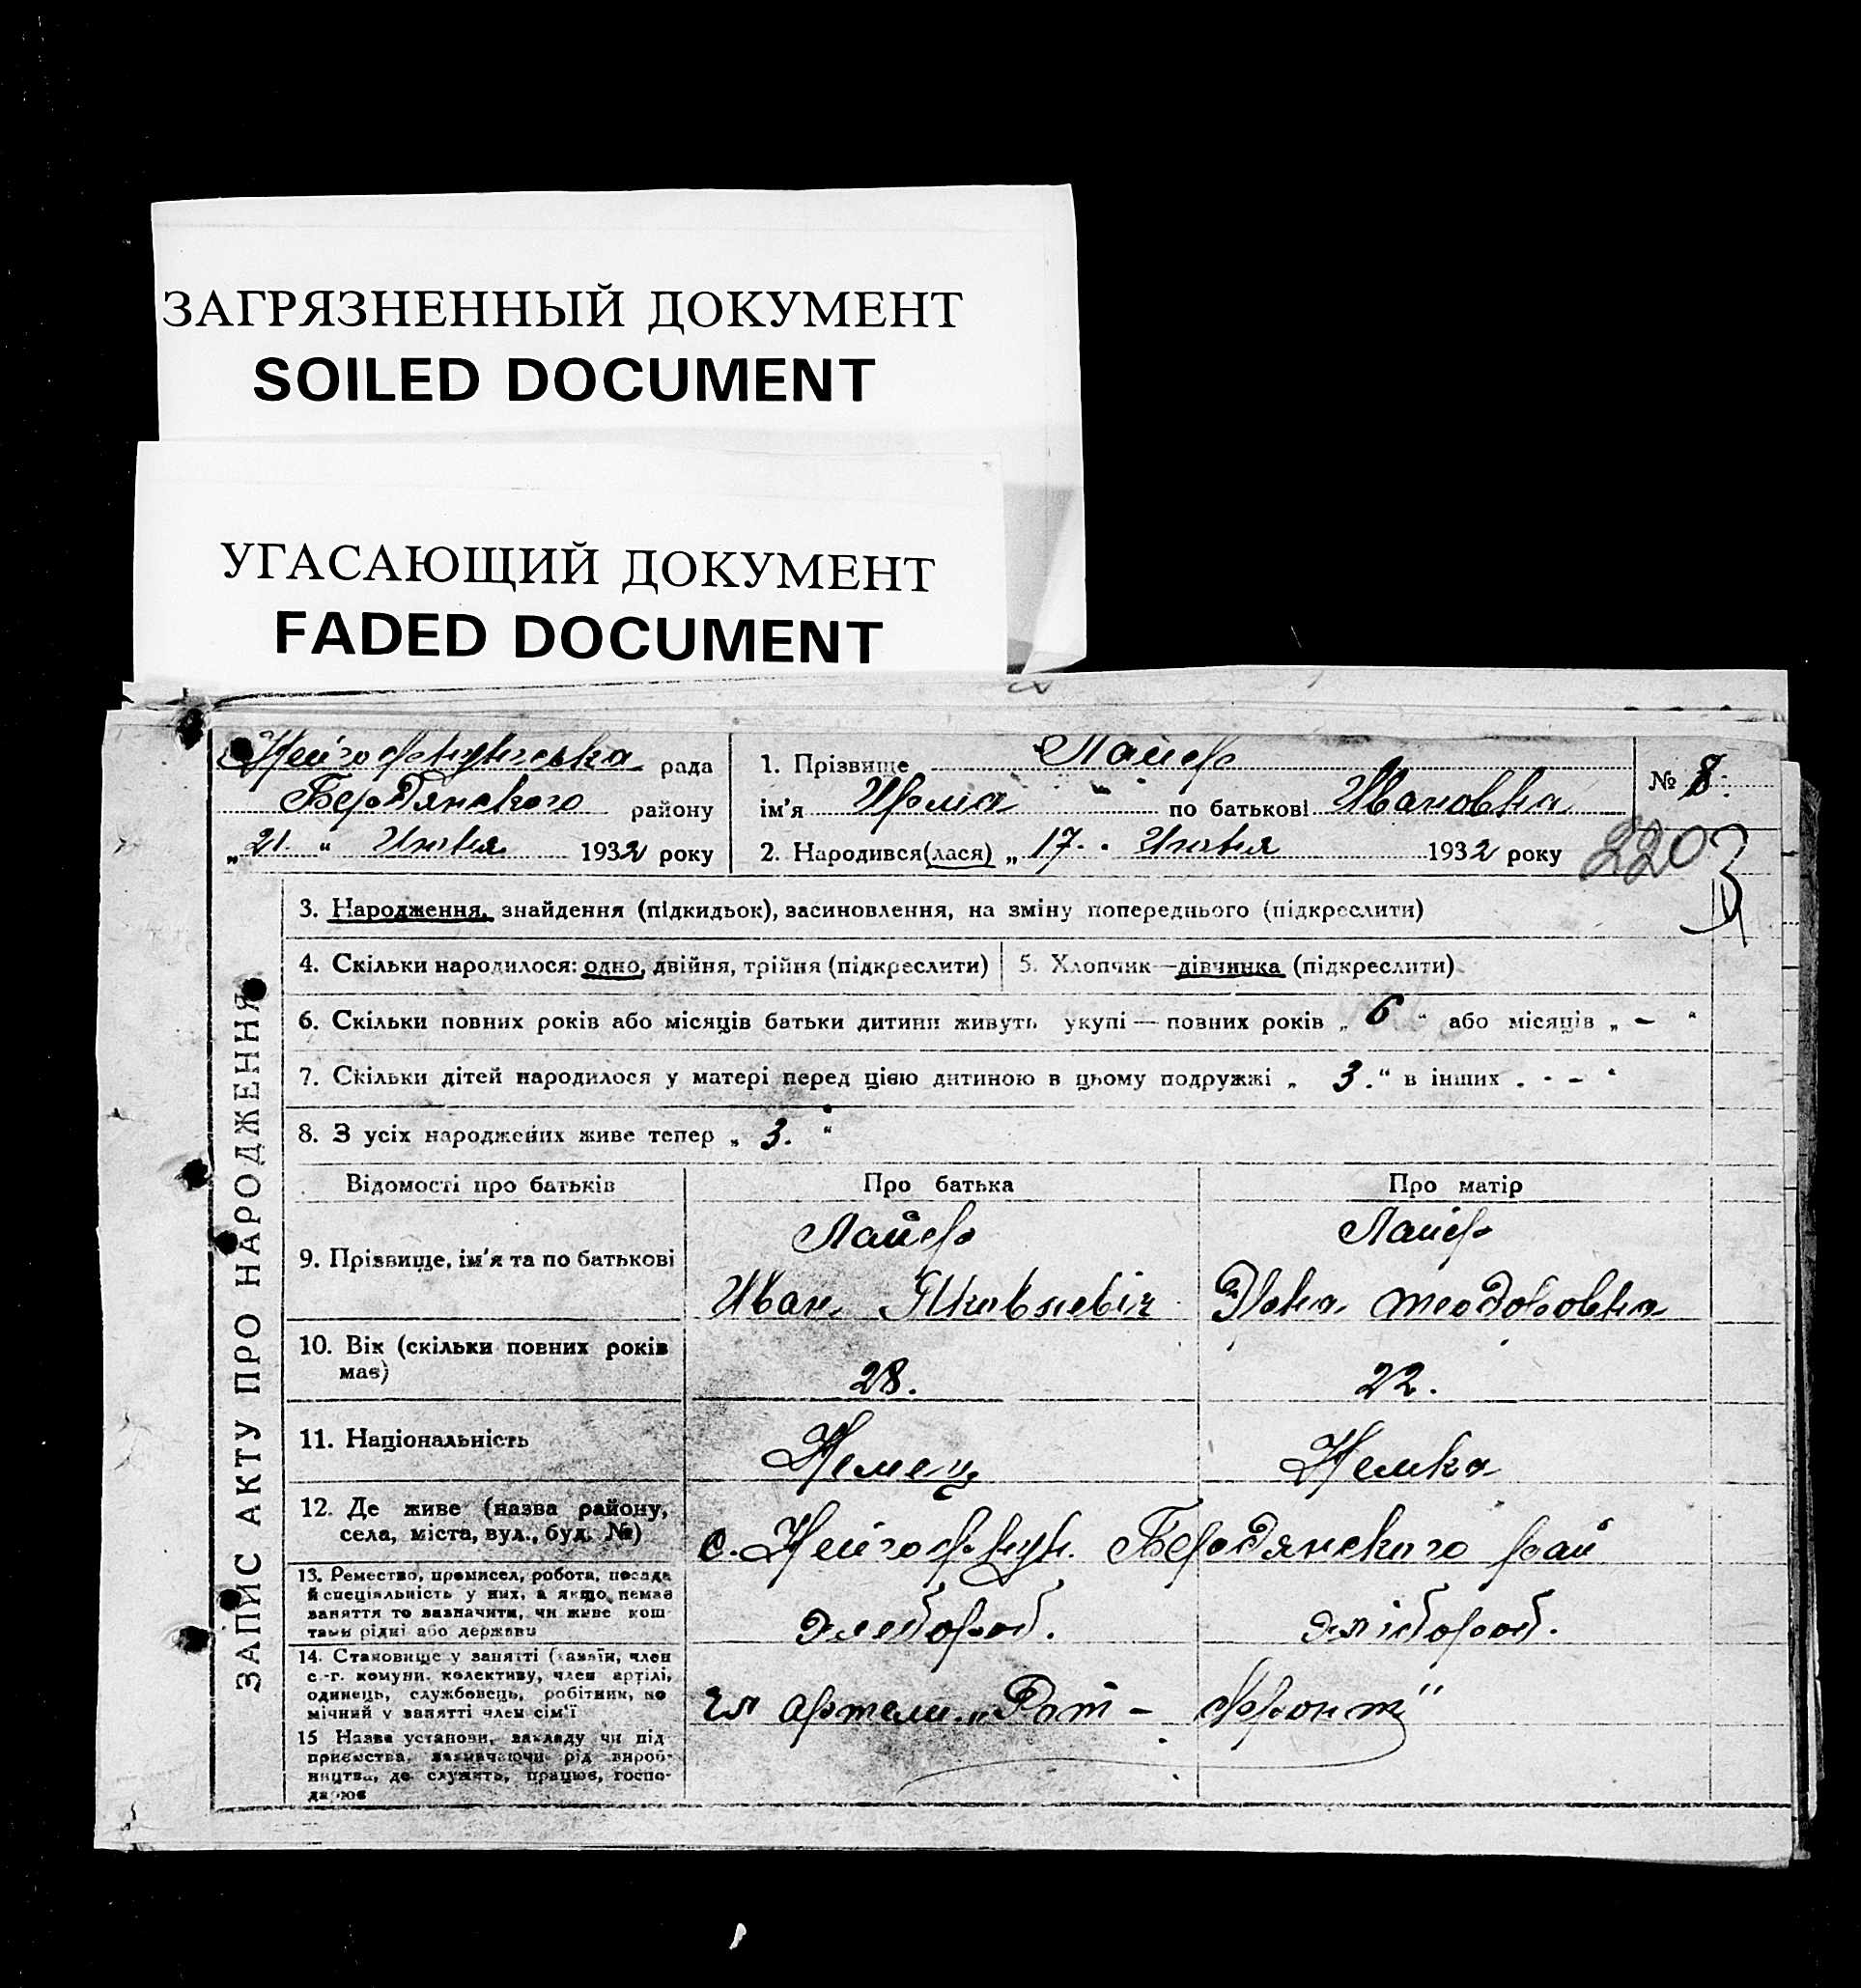 ЗАГРЯЗНЕННЫЙ ДОКУМЕНТ
SOILED DOCUMENT
УГАСАЮЩИЙ ДОКУМЕНТ
FADED DOCUMENT
рада
Бердянского району
„21.“ 1932 року
1. Прізвище Лайер
ім'я Ирма по батькові Ивановна
2. Народився(лася) „17. 1932 року
№ 8.
220
ЗАПИС АКТУ ПРО НАРОДЖЕННЯ
3. Народження, знайдення (підкидьок), засиновлення, на зміну попереднього (підкреслити)
4. Скільки народилося: одно, двійня, трійня (підкреслити)
5. Хлопчик—дівчинка (підкреслити)
6. Скільки повних років або місяців батьки дитини живуть укупі — повних років „ 6 “ або місяців „ – “
7. Скільки дітей народилося у матері перед цією дитиною в цьому подружжі „ 3. “ в інших „ – “
8. З усіх народжених живе тепер „ 3. “
Відомості про батьків Про батька Про матір
9. Прізвище, ім'я та по батькові
Лайер
Иван
Лайер
Теодоровна
10. Вік (скільки повних років має)
28.
22.
11. Національність
Немец
Немка
12. Де живе (назва району,
села, міста, вул., буд. №)
с. Бердянского рай
13. Ремество, промисел, робота, посада
й спеціяльність у них, а якщо немає
заняття то зазначити, чи живе кош-
тами рідні або держави
хлебороб.
хлібороб.
14. Становище у занятті (хазяїн, член
с.-г. комуни, колективу, член артілі,
одинець, службовець, робітник, по
мічний у занятті член сім'ї
чл артели „Рот – Фронт"
15 Назва установи, закладу чи під
приємства, зазначаючи рід вироб-
ництва, де служить, працює, госпо-
дарює